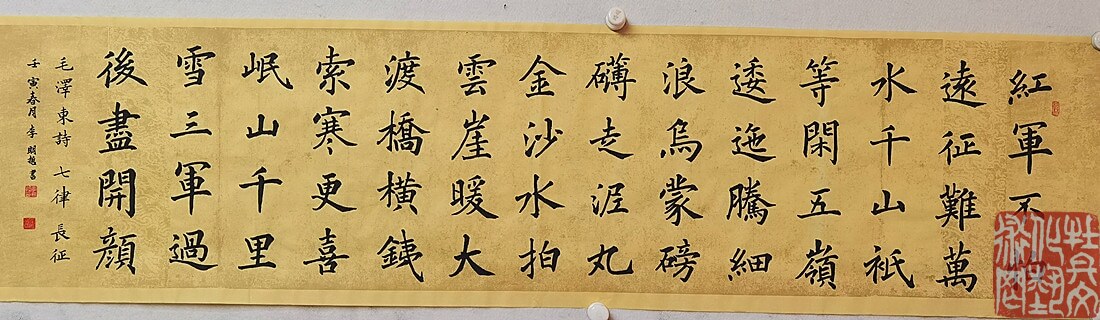 紅軍不
遠征難萬
水千山衹
等閑五嶺
逶迤騰細
浪烏蒙磅
礴走泥丸
金沙水拍
雲崖暖大
渡橋橫銕
索寒更喜
岷山千里
雪三軍過
後盡開顏
毛澤東詩 七律 長征
壬寅春月李書